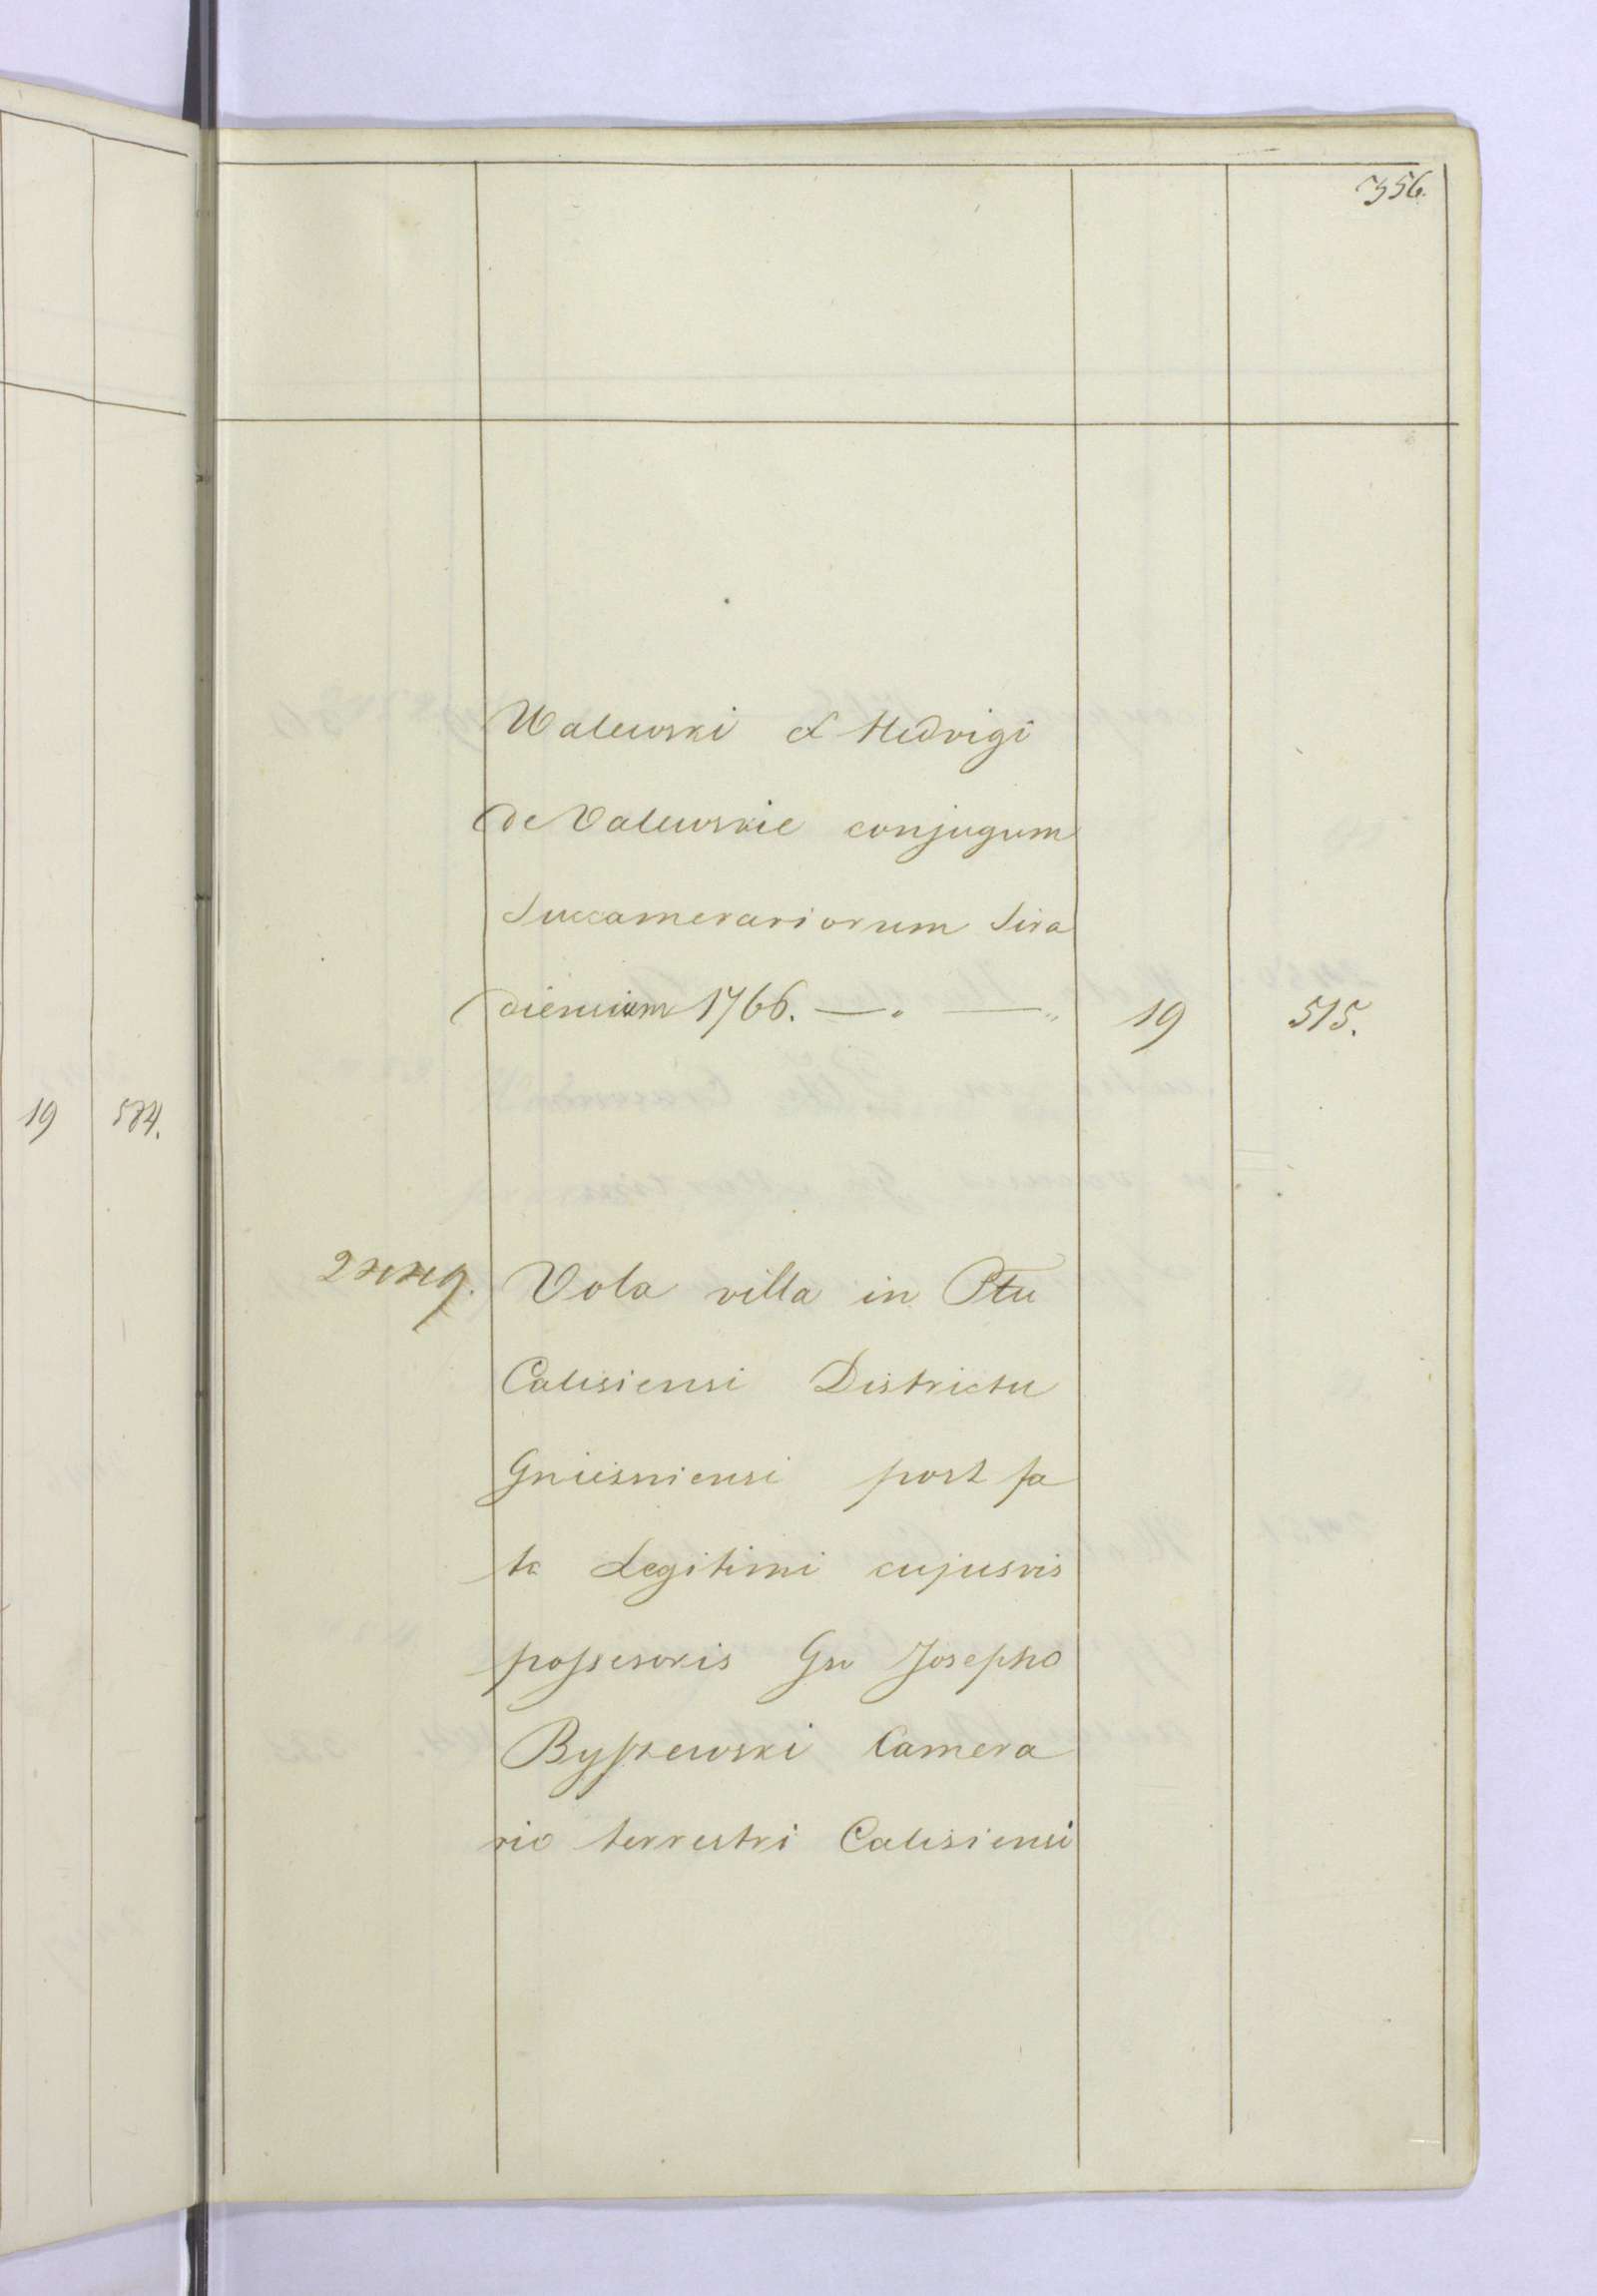 356.
Walewski et Hedvigi
de Valewskie conjugum
Succamerariorum Sira
diensium 1766. —. — 19 515.
19 574.
Vola villa in Ptu
Calisiensi Districtu
Gniesniensi post fa
ta Legitimi cujusvis
possesoris Gso Josepho
Byszewski Camera
rio terrestri Calisiensi